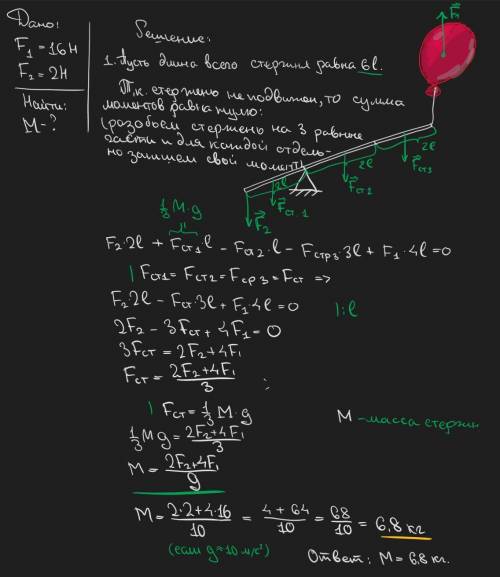 Дано:
F₁ = 16Н
F₂ = 2Н
Найти:
М - ?
Решение:
1. Пусть длина всего стержня равна 6l.
Т.к. стержень неподвижен, то сумма
моментов равна нулю:
(разобьем стержень на 3 равные
части и для каждой отдель-
но запишем свой момент)
F₁
2l
2l
2l
F₂
Fст.1
Fст2
Fст3
⅓ M·g
F₂·2l + Fст1·l - Fст2·l - Fстр3·3l + F₁·4l = 0
| Fст1 = Fст2 = Fср3 = Fст =>
F₂·2l - Fст·3l + F₁·4l = 0 | : l
2F₂ - 3Fст + 4F₁ = 0
3Fст = 2F₂ + 4F₁
Fст = (2F₂ + 4F₁)/3
| Fст = ⅓ M·g
М - масса стержн
⅓ M g = (2F₂ + 4F₁)/3
M = (2F₂ + 4F₁)/g
M = (2·2 + 4·16)/10 = (4 + 64)/10 = 68/10 = 6,8 кг
(если g = 10 м/с²)
Ответ: М = 6,8 кг.